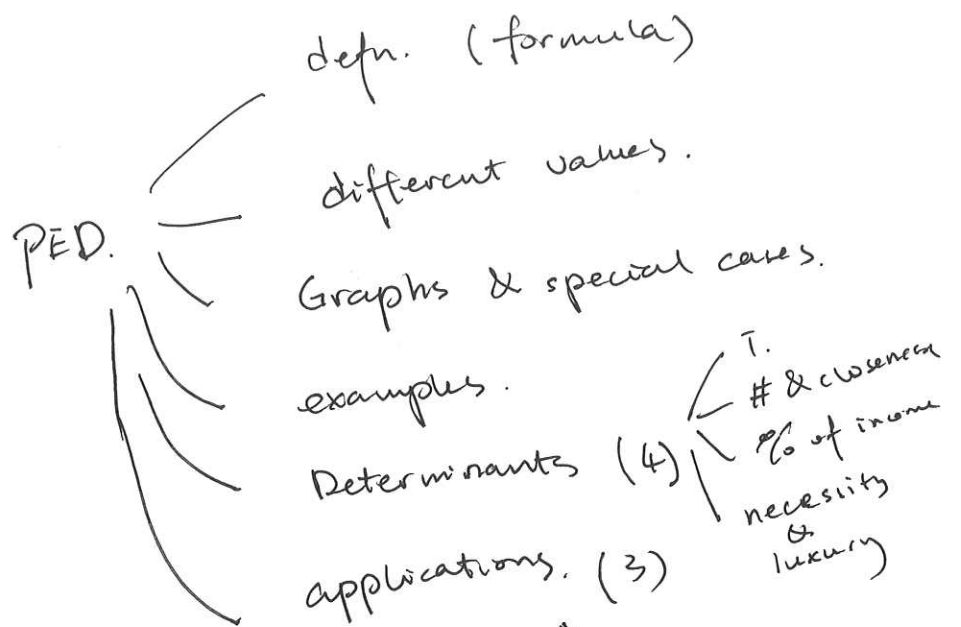 defn. (formula)
different values.
PED.
Graphs & special cases.
examples.
Determinants (4)
T.
# & closeness
% of income
necessity
&
luxury
applications. (3)